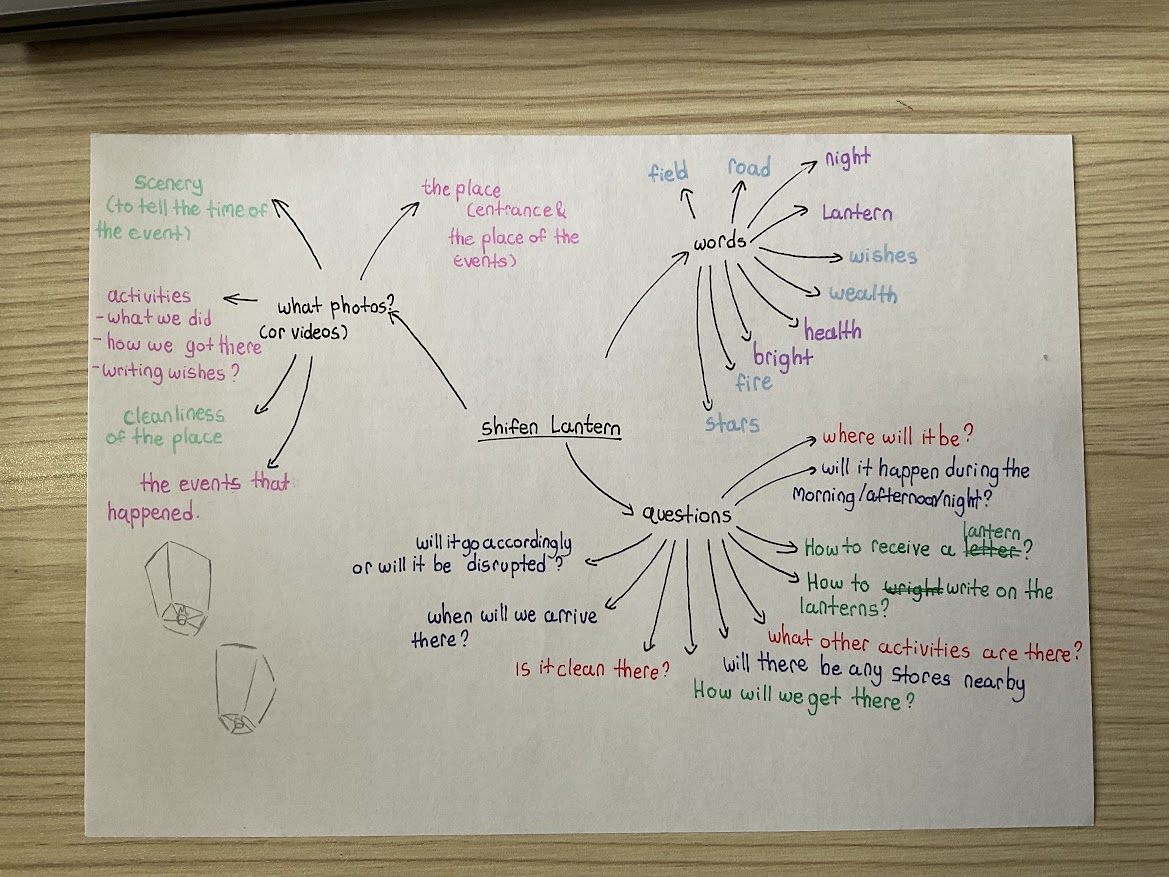 Scenery
(to tell the time of
the event)
the place
(entrance &
the place of the
events)
activities
- what we did
- how we got there
- writing wishes?
what photos?
(or videos)
cleanliness
of the place
the events that
happened.
field
road
night
Lantern
words
wishes
wealth
health
bright
fire
stars
Shifen Lantern
questions
where will it be?
will it happen during the
Morning/afternoon/night?
lantern
How to receive a letter?
How to wright write on the
lanterns?
what other activities are there?
will there be any stores nearby
How will we get there?
Is it clean there?
when will we arrive
there?
will it go accordingly
or will it be disrupted?